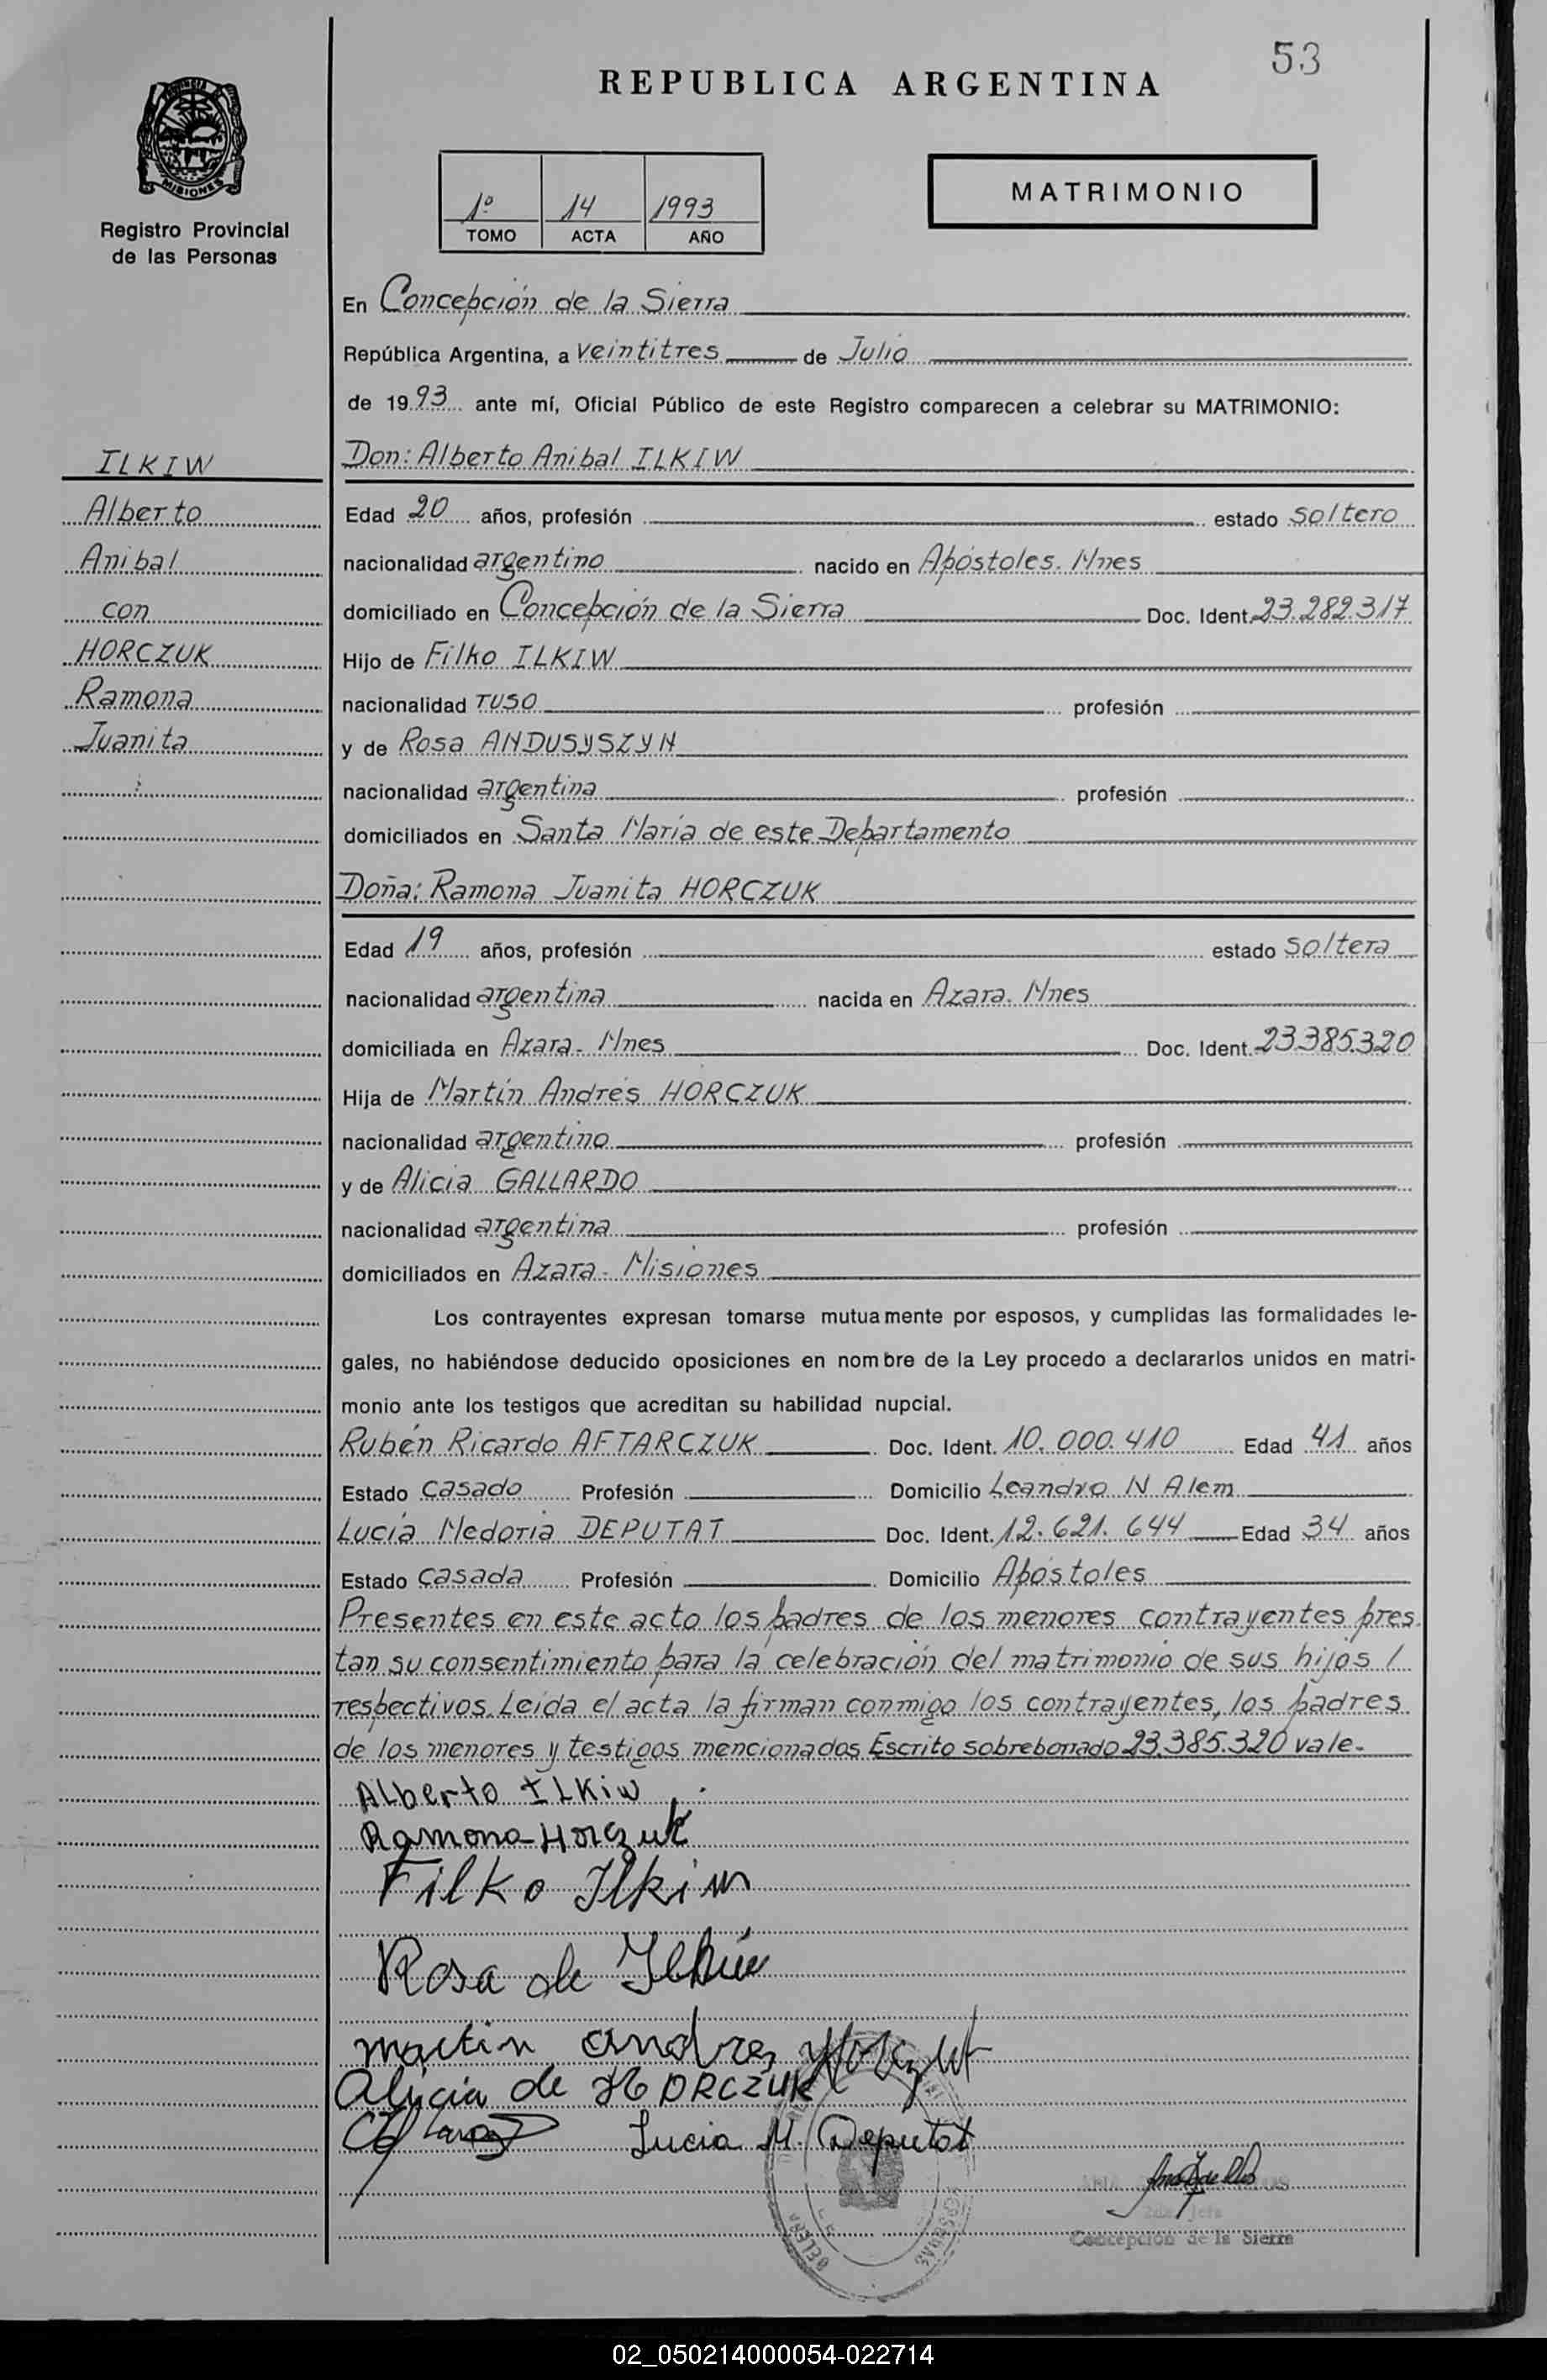 53
REPUBLICA ARGENTINA
MISIONES
Registro Provincial
de las Personas
1º 14 1993
TOMO ACTA AÑO
MATRIMONIO
En Concepción de la Sierra
República Argentina, a veintitres de Julio
de 1993 ante mí, Oficial Público de este Registro comparecen a celebrar su MATRIMONIO:
ILKIW
Alberto
Anibal
con
HORCZUK
Ramona
Juanita
Don: Alberto Anibal ILKIW
Edad 20 años, profesión estado soltero
nacionalidad argentino nacido en Apóstoles. Mnes
domiciliado en Concepción de la Sierra Doc. Ident. 23.282.317
Hijo de Filko ILKIW
nacionalidad ruso profesión
y de Rosa ANDUSYSZYN
nacionalidad argentina profesión
domiciliados en Santa María de este Departamento
Doña: Ramona Juanita HORCZUK
Edad 19 años, profesión estado soltera
nacionalidad argentina nacida en Azara. Mnes
domiciliada en Azara - Mnes Doc. Ident. 23.385.320
Hija de Martín Andrés HORCZUK
nacionalidad argentino profesión
y de Alicia GALLARDO
nacionalidad argentina profesión
domiciliados en Azara - Misiones
Los contrayentes expresan tomarse mutuamente por esposos, y cumplidas las formalidades le-
gales, no habiéndose deducido oposiciones en nombre de la Ley procedo a declararlos unidos en matri-
monio ante los testigos que acreditan su habilidad nupcial.
Rubén Ricardo AFTARCZUK Doc. Ident. 10.000.410 Edad 41 años
Estado casado Profesión Domicilio Leandro N Alem
Lucía Medoria DEPUTAT Doc. Ident. 12.621.644 Edad 34 años
Estado casada Profesión Domicilio Apóstoles
Presentes en este acto los padres de los menores contrayentes pres
tan su consentimiento para la celebración del matrimonio de sus hijos /
respectivos. Leída el acta la firman conmigo los contrayentes, los padres
de los menores y testigos mencionados Escrito sobreborrado 23.385.320 vale.-
Alberto ILKiw
Ramona Horczuk
Filko Ilkiw
Rosa de Ilkiw
martin andres Horczuk
Alicia de HORCZUK
Lucia M. Deputat
2da Jefa
Concepción de la Sierra
02_050214000054-022714